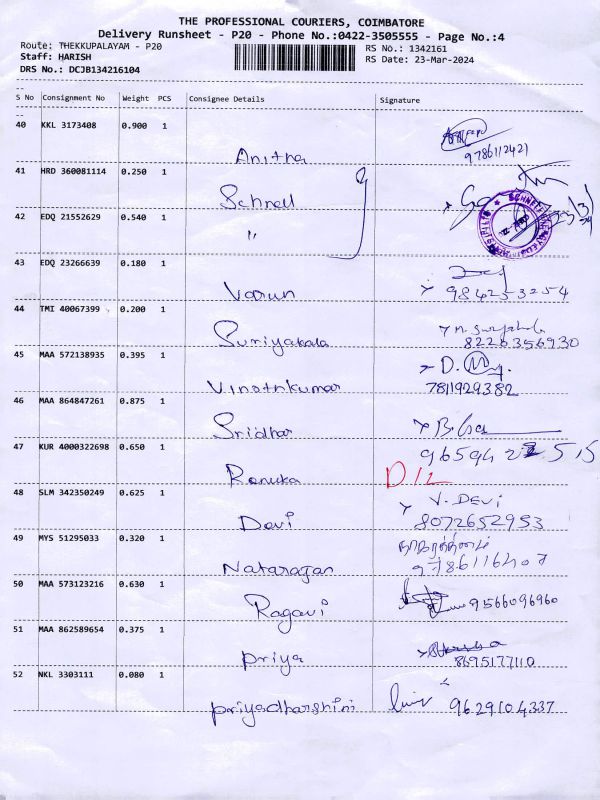 THE PROFESSIONAL COURIERS, COIMBATORE
Delivery Runsheet - P20 - Phone No.:0422-3505555 - Page No.:4
Route: THEKKUPALAYAM - P20
RS No.: 1342161
Staff: HARISH
RS Date: 23-Mar-2024
DRS No.: DCJB134216104
S No Consignment No Weight PCS Consignee Details Signature
40 KKL 3173408 0.900 1
Anitha 9786112421
41 HRD 360081114 0.250 1
Schnell
42 EDQ 21552629 0.540 1
"
43 EDQ 23266639 0.180 1
Varun 984253254
44 TMI 40067399 0.200 1
Suriyakala 8220356930
45 MAA 572138935 0.395 1
D.
Vinothkumar 7811929382
46 MAA 864847261 0.875 1
Sridhar
47 KUR 4000322698 0.650 1
Renuka D/L
48 SLM 342350249 0.625 1
V. DEVi
Devi 8072652953
49 MYS 51295033 0.320 1
Natarajan 9786116407
50 MAA 573123216 0.630 1
Ragavi 9566096960
51 MAA 862589654 0.375 1
priya 8695177110
52 NKL 3303111 0.080 1
priyadharshini 9629104337